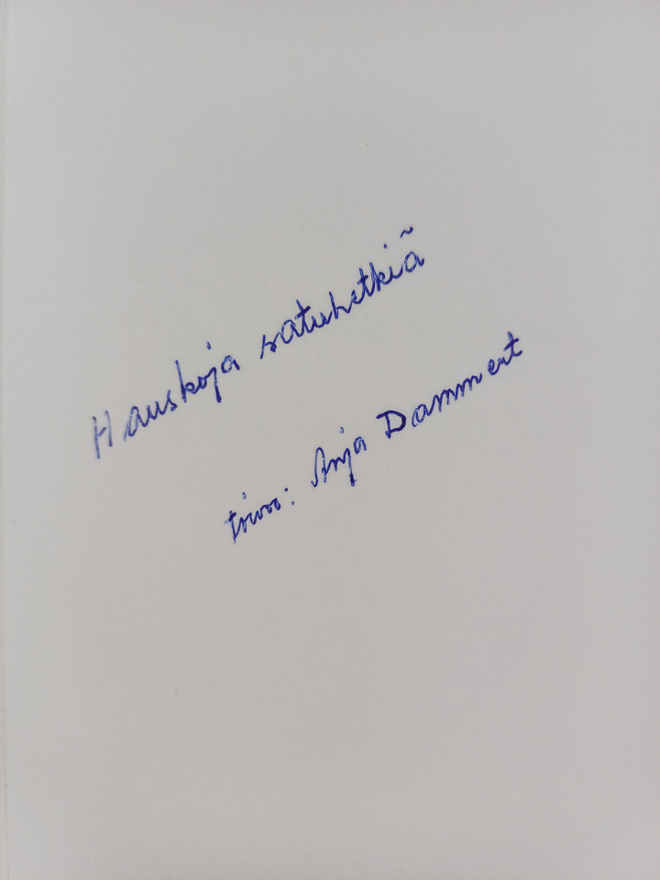 Hauskoja satuhetkiä
toivoo: Anja Dammert